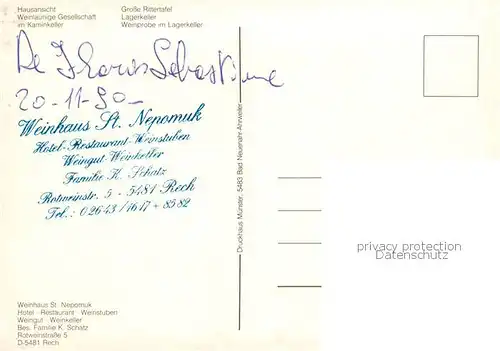 Hausansicht
Weinlaunige Gesellschaft
im Kaminkeller
Große Rittertafel
Lagerkeller
Weinprobe im Lagerkeller
20-11-90
Weinhaus St. Nepomuk
Hotel-Restaurant-Weinstuben
Weingut-Weinkeller
Familie K. Schatz
Rotweinstr. 5 - 5481 Rech
Tel.: 02643/1617 + 8582
Druckhaus Münster, 5483 Bad Neuenahr-Ahrweiler
privacy protection
Weinhaus St. Nepomuk
Hotel · Restaurant · Weinstuben
Weingut · Weinkeller
Bes. Familie K. Schatz
Rotweinstraße 5
D-5481 Rech